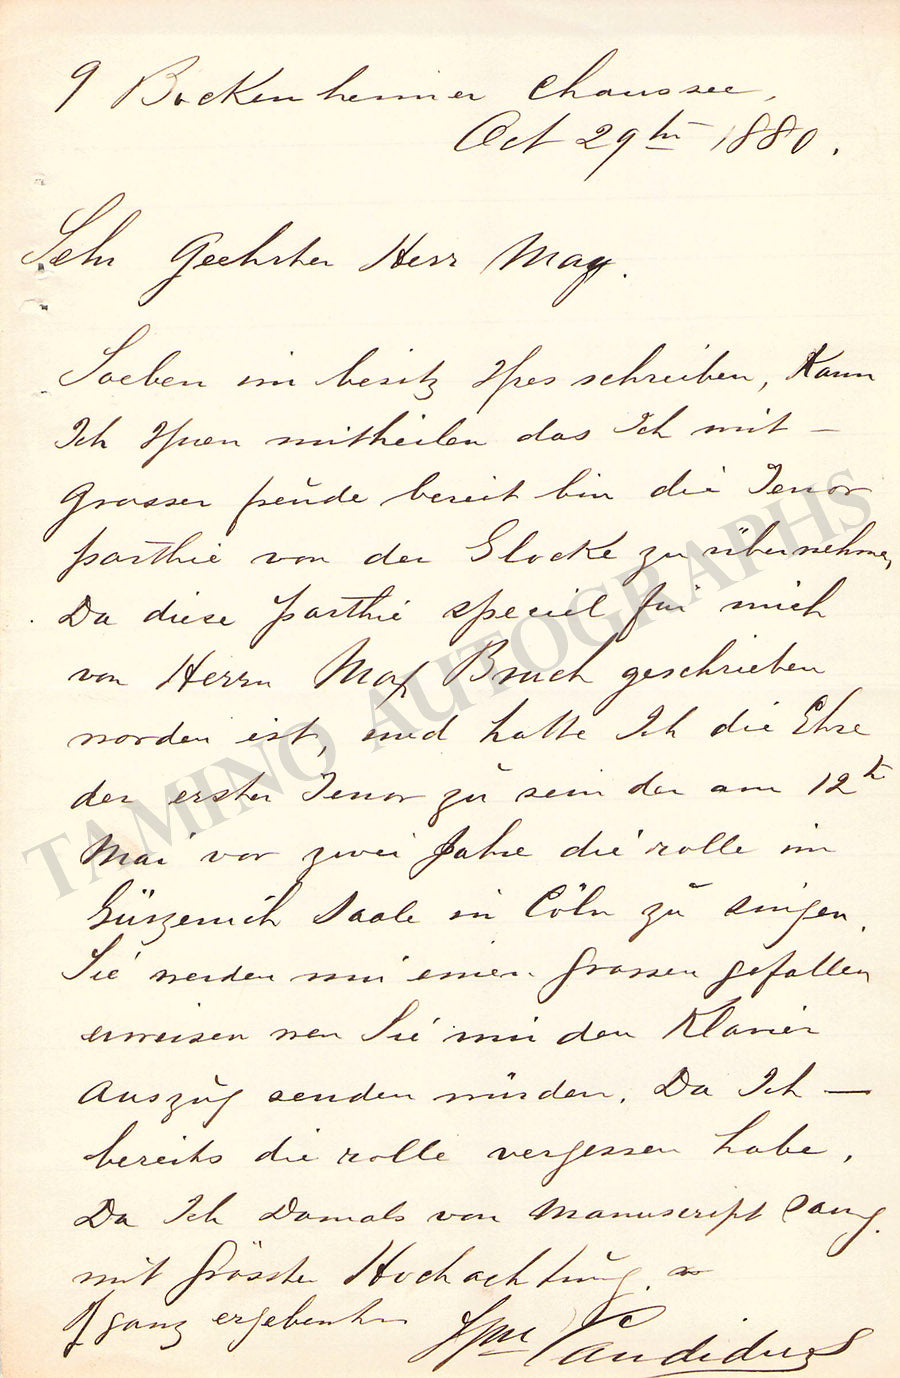 9 Bockenheimer Chaussee,
Oct 29th 1880.
Sehr Geehrter Herr May.
Soeben im besitz Ihres schreiben, Kann
Ich Ihnen mittheilen das Ich mit –
Grosser freude bereit bin die Tenor
parthie von der Glocke zu übernehmen,
Da diese parthie speciel für mich
von Herrn Max Bruch geschrieben
worden ist, und hatte Ich die Ehre
der erster Tenor zu sein der am 12th
Mai vor zwei Jahre die rolle im
Gürzenich Saale in Cöln zu singen.
Sie werden mir einen Grossen gefallen
erweisen wen Sie mir den Klavier
Auszug senden würden. Da Ich —
bereits die rolle vergessen habe.
Da Ich Damals von Manuscript sang.
mit Grösster Hochachtung
ganz ergebenster
Candidus
TAMINO AUTOGRAPHS